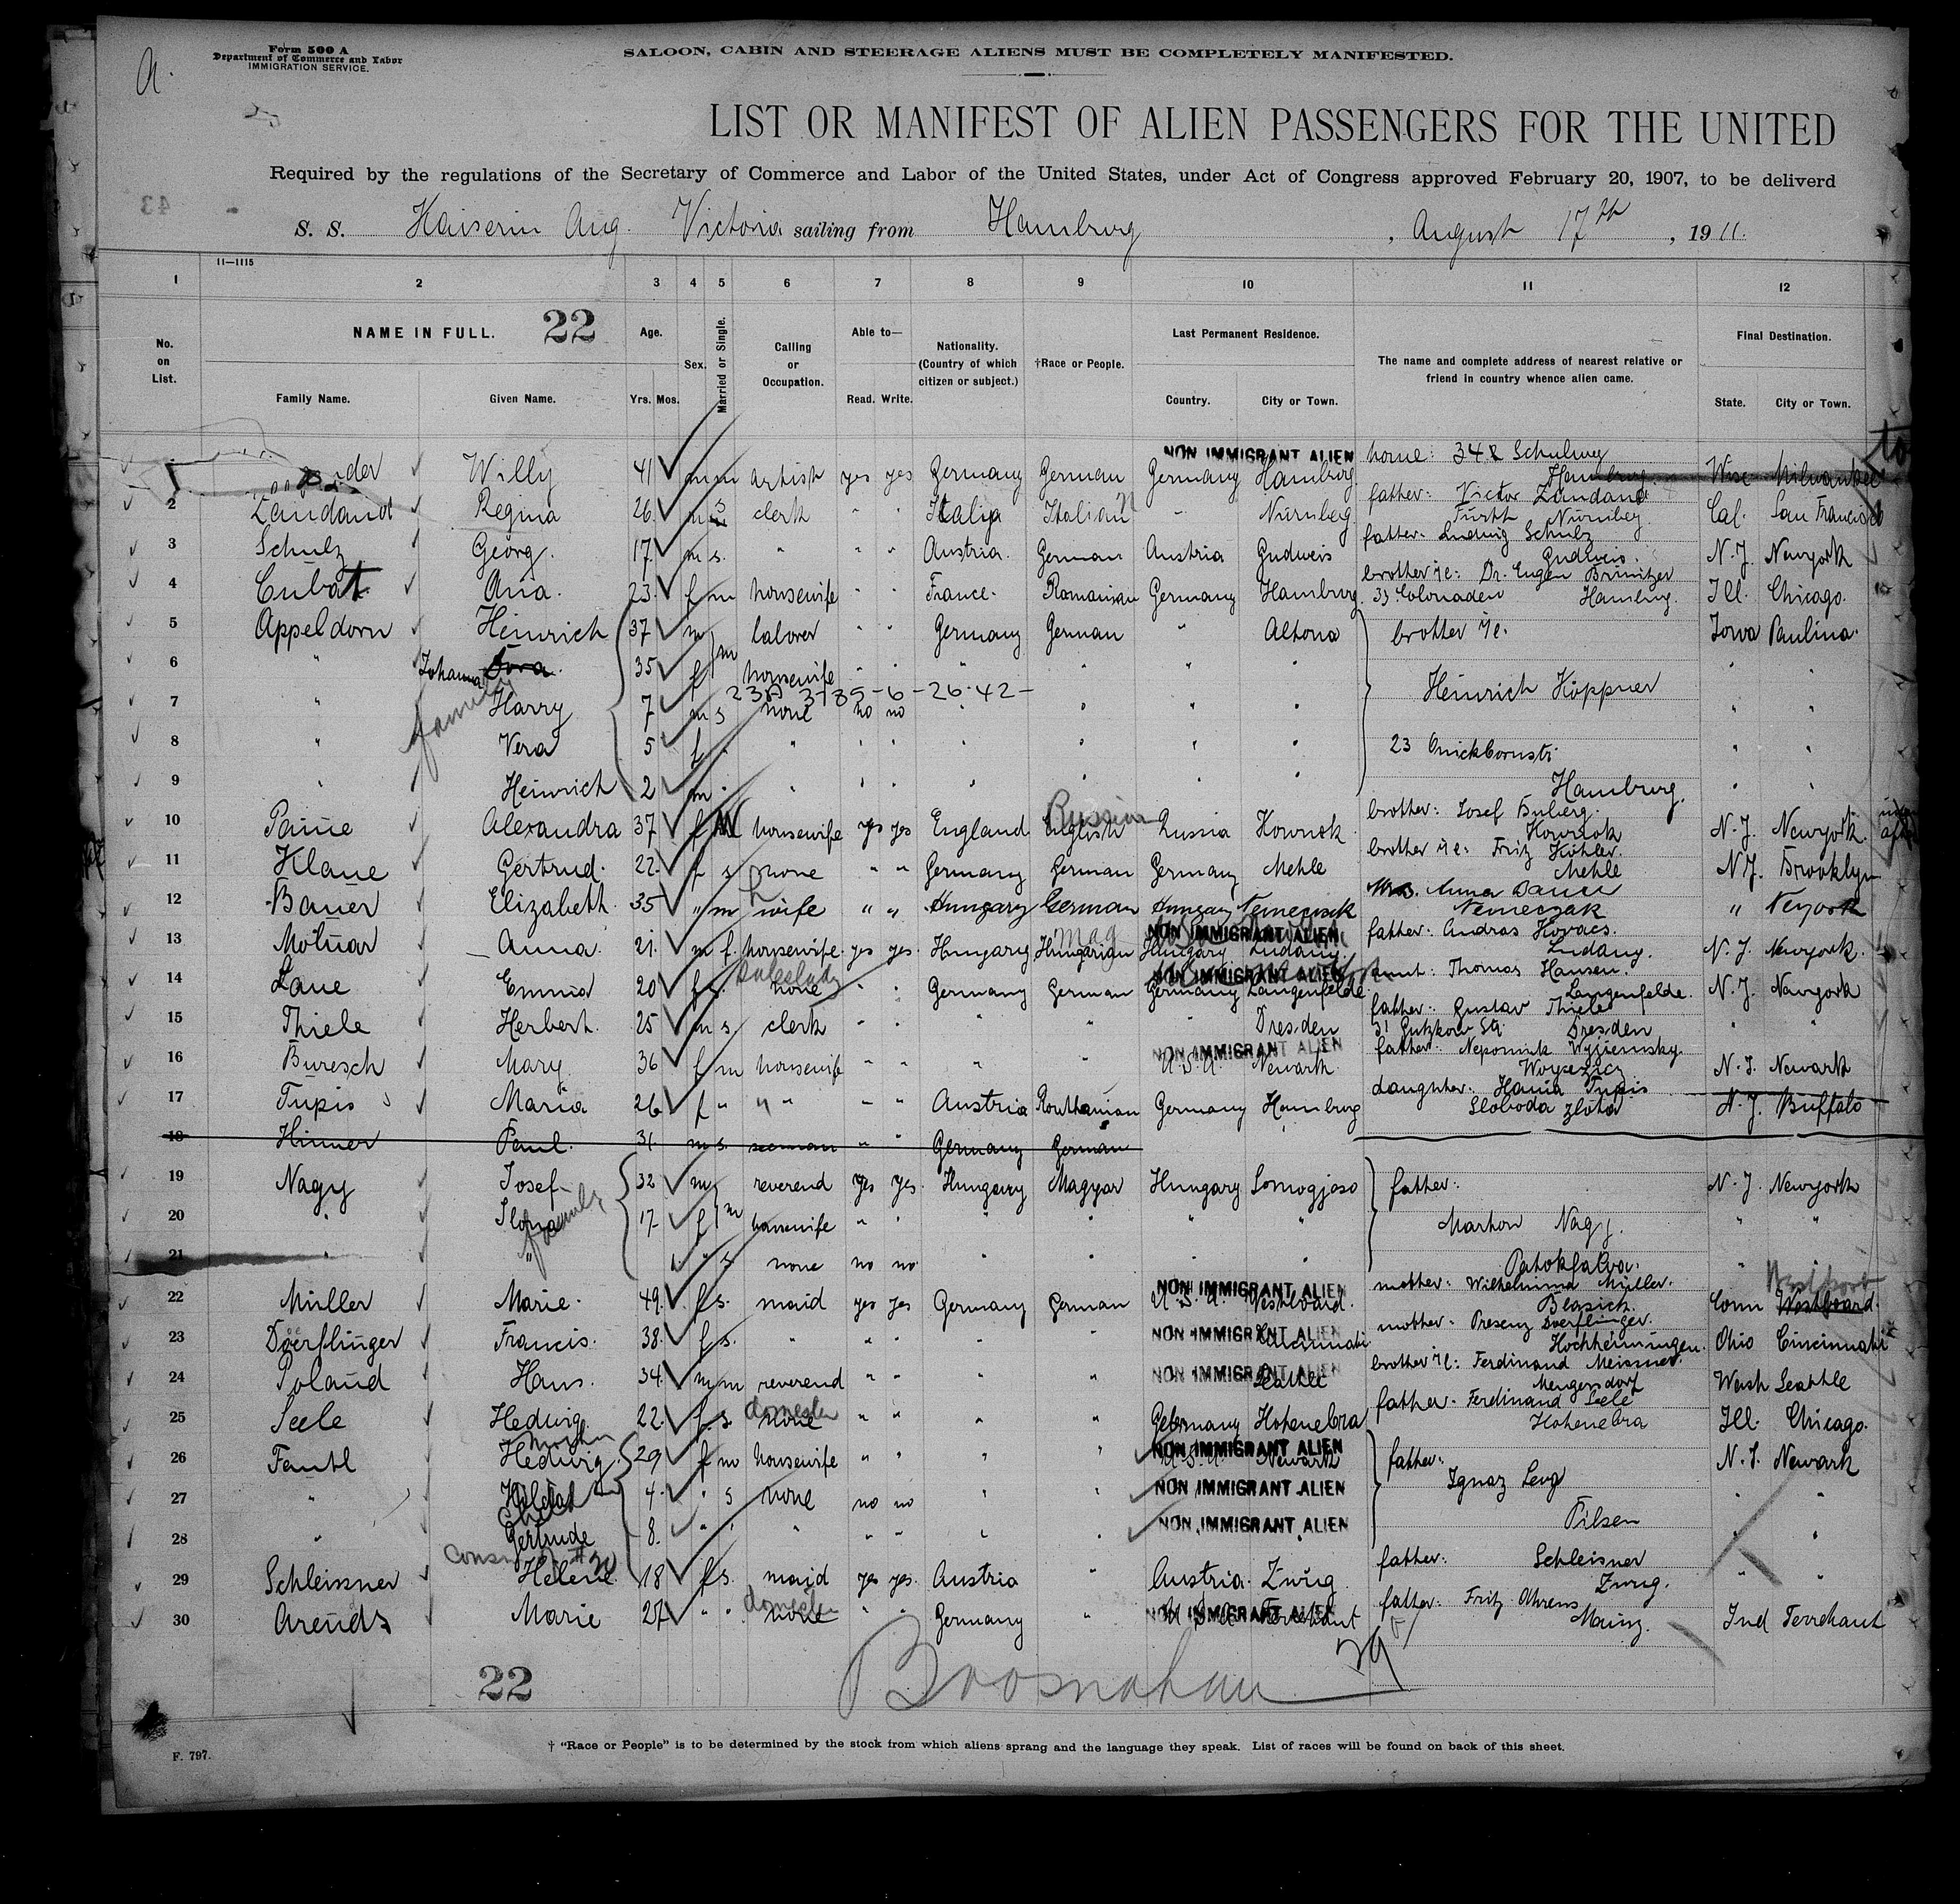 a.
Form 500 A
Department of Commerce and Labor
IMMIGRATION SERVICE.
SALOON, CABIN AND STEERAGE ALIENS MUST BE COMPLETELY MANIFESTED.
LIST OR MANIFEST OF ALIEN PASSENGERS FOR THE UNITED
Required by the regulations of the Secretary of Commerce and Labor of the United States, under Act of Congress approved February 20, 1907, to be deliverd
43
S. S. Kaiserin Aug. Victoria sailing from Hamburg, August 17th, 1911.
11—1115
1 2 3 4 5 6 7 8 9 10 11 12
No. on List. NAME IN FULL. 22 Age. Sex. Married or Single. Calling or Occupation. Able to— Nationality. (Country of which citizen or subject.) †Race or People. Last Permanent Residence. The name and complete address of nearest relative or friend in country whence alien came. Final Destination.
Family Name. Given Name. Yrs. Mos. Read. Write. Country. City or Town. State. City or Town.
NON IMMIGRANT ALIEN
der Willy 41 m m artist yes yes Germany German Germany Hamburg home: Hamburg Wisc Milwaukee
2 Zandandt Regina 26 s clerk " " Italia Italian " Nürnberg father: Victor Zandand Fürth Nürnberg Cal. San Francisco
3 Schulz Georg. 17 m s. " " " Austria. German Austria Gudweis father: Ludwig Schulz Gudweis. N.J. Newyork
4 Cubat Ana. 23 f m housewife " " France. Romanian Germany Hamburg brother il: Dr. Eugen Brünitzer 33 Colonaden Hamburg. Ill. Chicago.
5 Appeldorn Heinrich 37 m laborer " " Germany German " Altona brother il. Iowa Paulina.
6 " Johanna 35 f m housewife " " " " " " " "
7 " Harry 7 m s none no no " " " " Heinrich Köppner " "
8 " Vera 5 f " " " " " " " " 23 Quickbornstr. " "
9 " Heinrich 2 m " " " " " " " " Hamburg. " "
family
10 Paine Alexandra 37 f M housewife yes yes England English Russian Russia Kownok brother: Josef Kownok N.J. Newyork.
11 Klane Gertrud. 22 f s none " " Germany German Germany Mehle brother il: Fritz Köhler. Mehle N.J. Brooklyn
12 Bauer Elizabeth 35 " m wife " " Hungary German Hungary Nemeczek Mrs. Anna Bauer Nemeczak " Neyork
13 Molnar Anna. 21. m f. housewife yes yes. Hungary Hungarian mag Hungary Ludany NON IMMIGRANT ALIEN father: Andras Kovacs. Ludany. N.J. Newyork.
14 Lane Emma 20 f s. none saleslady " " Germany German Germany Langenfelde. NON IMMIGRANT ALIEN aunt: Thomas Hansen. Langenfelde. N.J. Newyork
15 Thiele Herbert. 25 m s. clerk " " " " " Dresden father: Gustav Thiele 31 Gutzkow Str. Dresden " "
16 Buresch Mary. 36 f m housewife " " " " U.S.A. Newark NON IMMIGRANT ALIEN father: Nepomuk N.J. Newark
17 Tupis Maria 26 f " " " " Austria Routhanian Germany Hamburg daughter: Hania Tupis Sloboda Zlota N.J. Buffalo
18 Hinner Paul. 31 m s. seeman " " Germany German
19 Nagy Josef 32 m reverend yes yes. Hungary Magyar Hungary Somogjoso father: N.J. Newyork
20 " Ilona 17 f m housewife " " " " " " Marton Nagy. " "
family
21 " " " s none no no " " " " Patokfalva. "
22 Müller Marie. 49. f s. maid yes yes Germany German U.S.A. Westboard. NON IMMIGRANT ALIEN mother: Wilhelmina Müller. Conn Westboard. Westport
23 Doerflinger Francis. 38. f s. " " " " " Cincinnati NON IMMIGRANT ALIEN mother: Doerflinger. Hochheiningen. Ohio Cincinnati
24 Poland Hans. 34. m m reverend " " " " Seattle NON IMMIGRANT ALIEN brother il: Ferdinand Meissner. Mengersdorf Wash Seattle
25 Seele Hedwig. 22. f s. none domestic " " " " Germany Hohenebra father: Ferdinand Seele Hohenebra Ill. Chicago.
26 Fantl Hedwig 29 f m housewife " " " " U.S.A. Newark NON IMMIGRANT ALIEN father: N.J. Newark
27 " 4. " s none no no " " NON IMMIGRANT ALIEN Ignaz Levy " "
28 " Gertrude 8. " " " " " " " NON IMMIGRANT ALIEN Pilsen " "
29 Schleissner Helene. 18 f s. maid yes yes. Austria " Austria. Zwug. father: Schleisner Zwug. " "
30 Arends Marie 27 " " none domestic " " Germany " NON IMMIGRANT ALIEN father: Fritz Ahrens Mainz. Ind Terrehaut
22
† "Race or People" is to be determined by the stock from which aliens sprang and the language they speak. List of races will be found on back of this sheet.
F. 797.